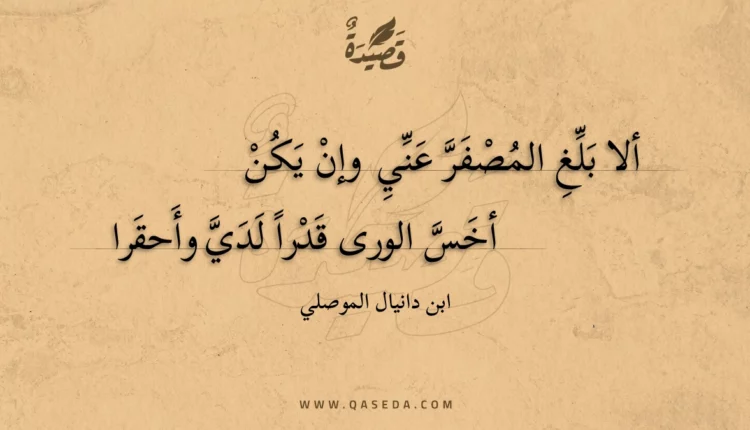 قَصِيْدَةٌ
ألا بَلِّغِ المُصْفَرَّ عَنِّيِ وإنْ يَكُنْ
أخَسَّ الورى قَدْراً لَدَيَّ وأَحقَرا
ابن دانيال الموصلي
WWW.QASEDA.COM